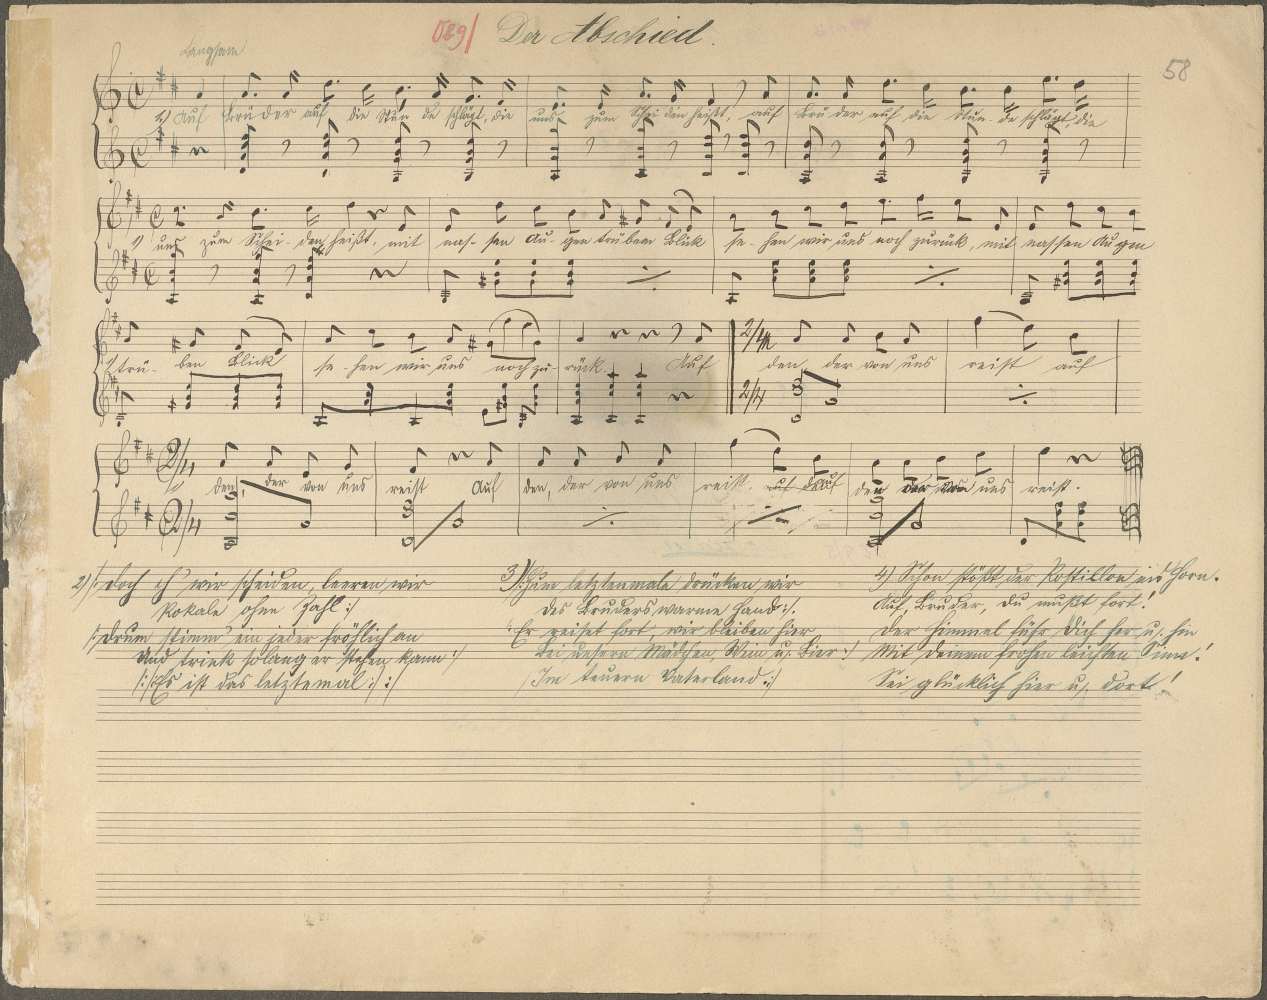 589/ Der Abschied.
58
Langsam
1) Auf Brüder auf die Stun de schlägt, die uns zum Schei den heißt, auf Brü der auf die Stun- de schlägt, die
1) uns zum Schei- den heißt, mit nas- sen Au- gen trübem Blick se- hen wir uns noch zurück, mit nassen Augen
1) trü- ben Blick se- hen wir uns noch zu- rück. Auf den, der von uns reist auf
den, der von uns reist Auf den, der von uns reist. auf den der von uns reist.
2) /: Doch eh' wir scheiden, leeren wir
Pokale ohne Zahl :/
/: Drum stimm' ein jeder fröhlich an
Und trink solang er stehen kann :/
/:/: Es ist das letztemal :/ :/
3) /: Zum letztenmale drücken wir
Des Bruders warme Hand :/.
/: Er reiset fort, wir bleiben hier
Bei unsern Mädchen, Wein u. Bier :/
/ Im teuern Vaterland :/
4) Schon stößt der Postillon ins Horn.
Auf, Bruder, du mußt fort!
Der Himmel führ' dich her u. hin
Mit deinem frohen leichten Sinn!
Sei glücklich hier u. dort!